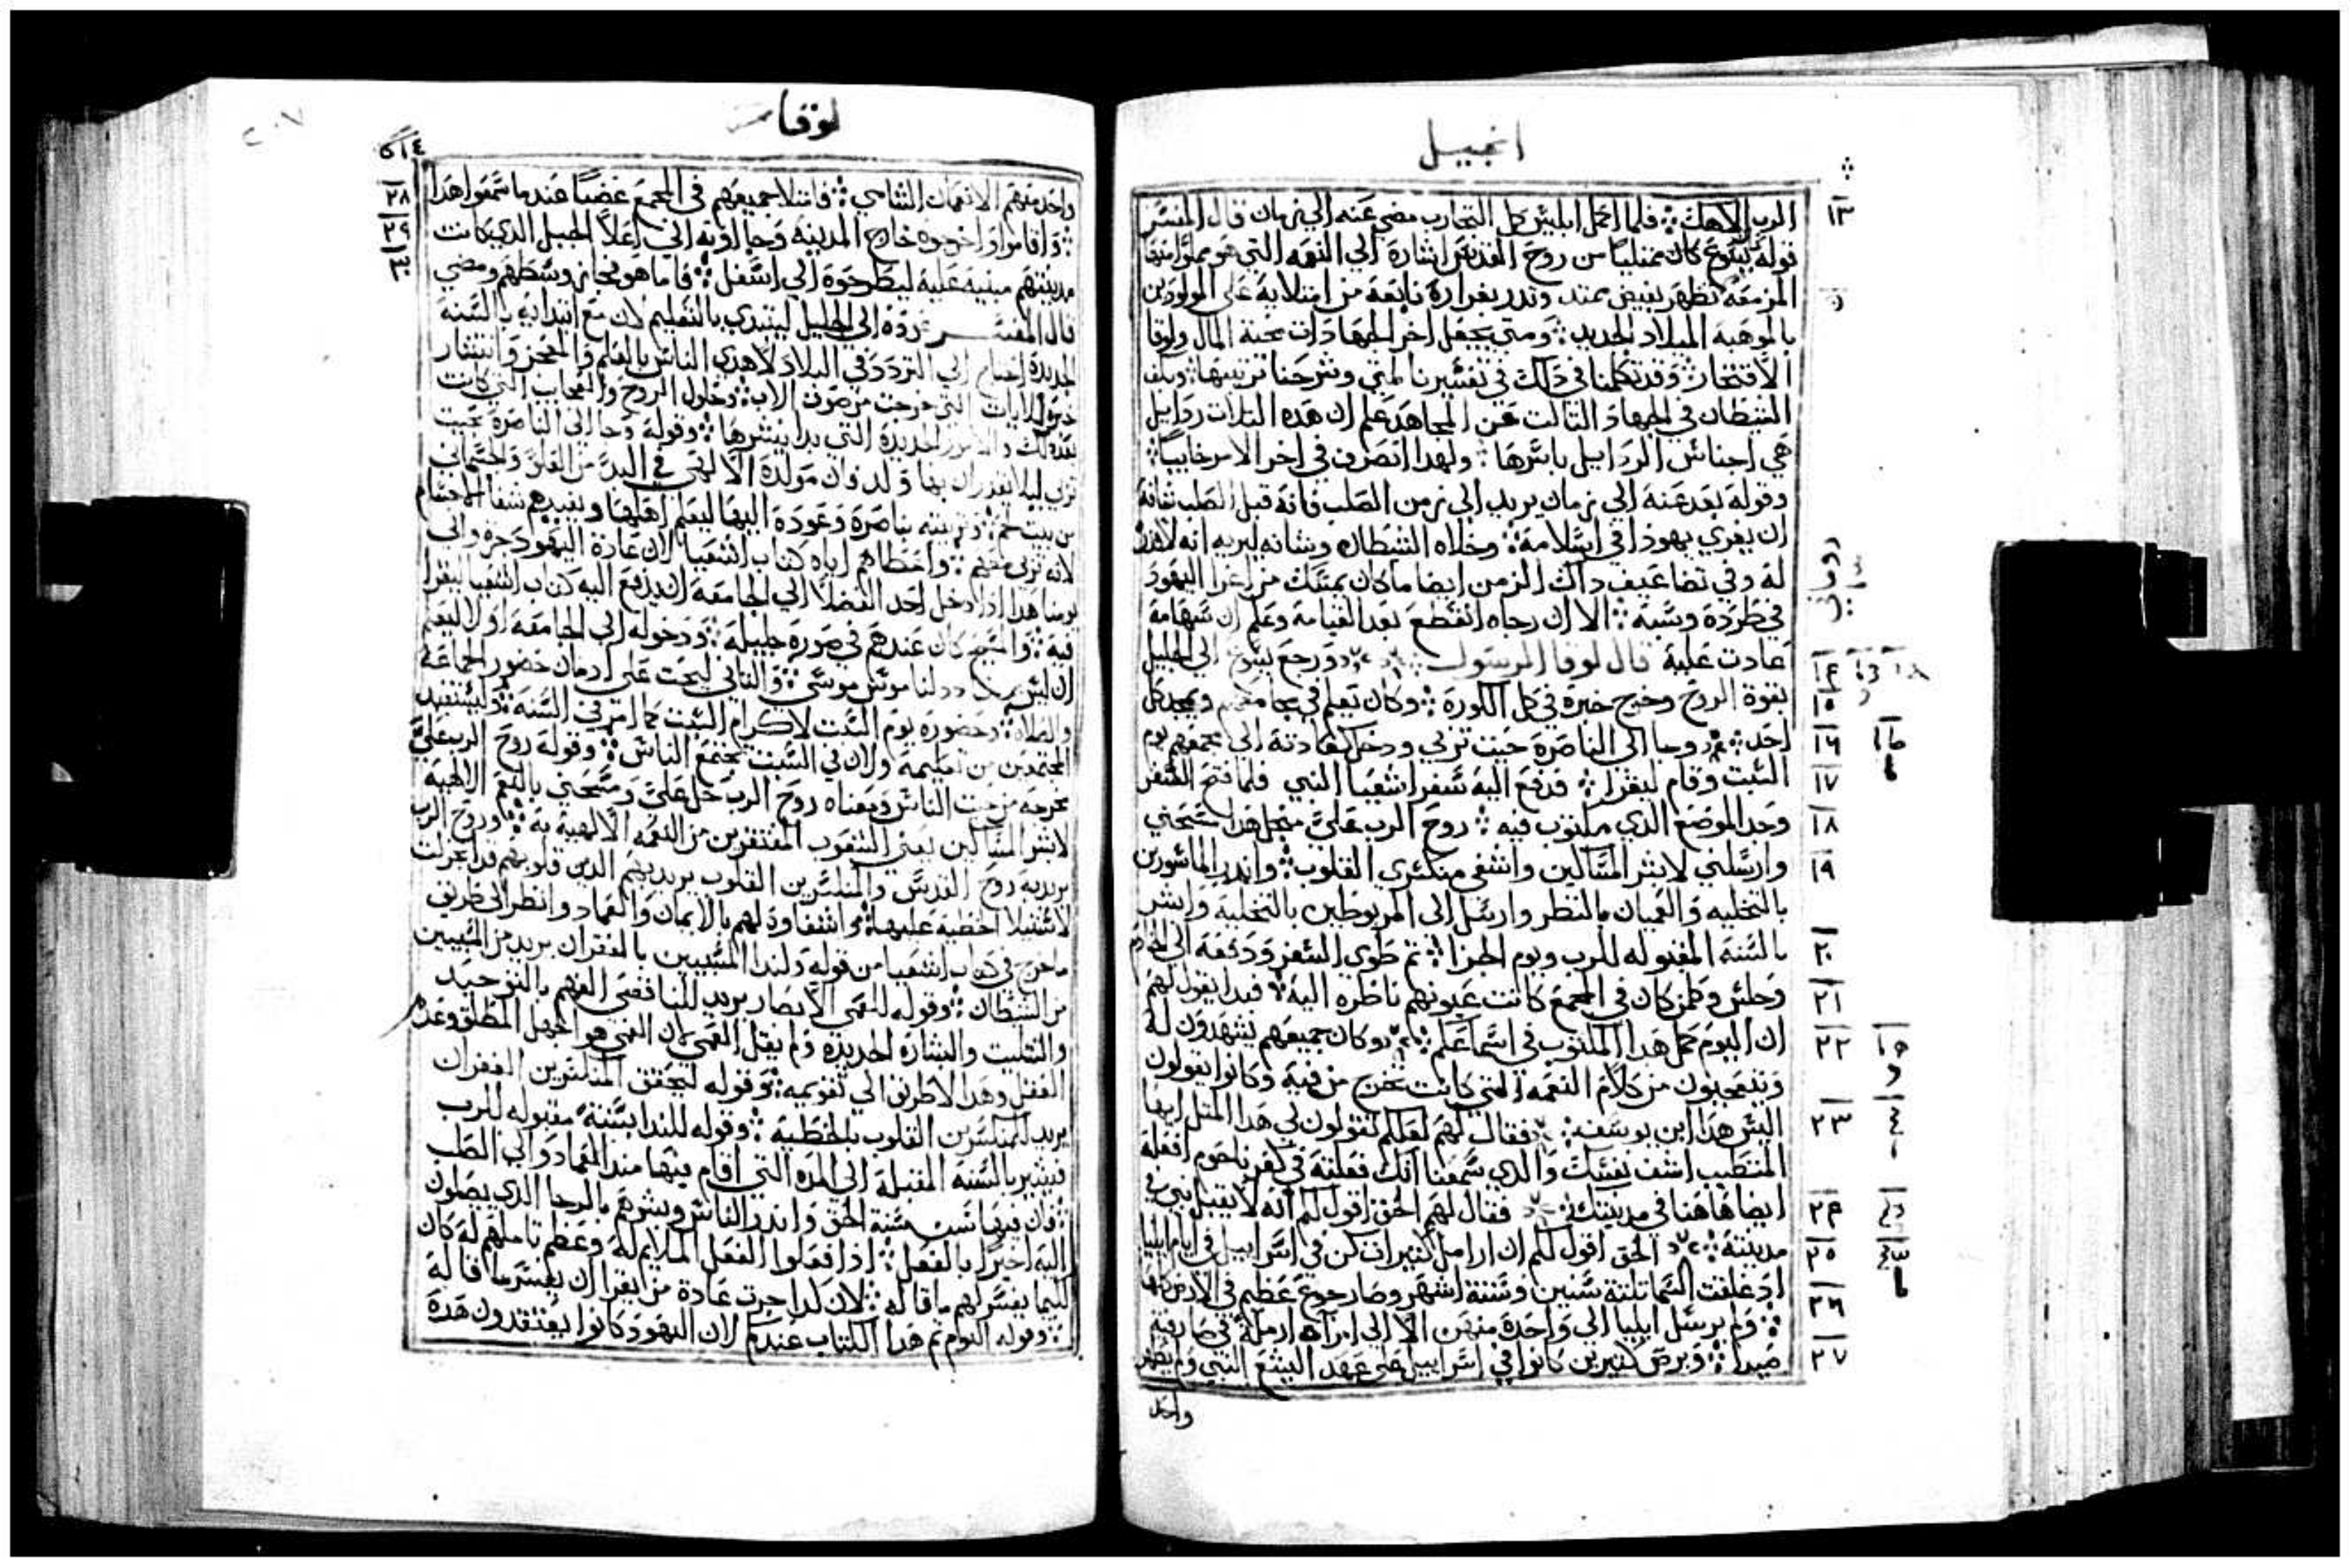 انجيل
١٣
الرب الاهك ፨ فلما اكمل ابليس كل التجارب مضي عنه الي زمان قال المفسر
قوله يسوع كان ممتليا من روح القدس اشارة الي النعمه التي هو مملوا منها
المزمعه تظهر بفيض يمتد وتدر بغزارة نابعة من امتلايه علي المولودين
بالموهبة الميلاد الجديد ፨ ومتي يجعل اخر الجهادات محبة المال ولوقا
الافتخار ፨ وقد تكلمنا في ذلك في تفسيرنا لمتي وشرحنا ترتيبها ፨
الشيطان في الجهاد الثالث عن المجاهد علم ان هذه الثلات ردايل
هي اجناس الردايل باسرها ፨ ولهذا انصرف في اخر الامر خايبا ፨
وقوله بعد عنه الي زمان يريد الي زمن الصلب فانه قبل الصلب
ان يغري يهوذا في اسلامه ፨ وخلاه الشيطان وشانه ليريه انه
له وفي تضاعيف داك الزمن ايضا ما كان يمسك من اغرا اليهود
في طرده وسبه ፨ الا ان رجاه انقطع بعد القيامة وعلم ان سهامه
عادت عليه قال لوقا الرسول ورجع يسوع الي الجليل
١٤
بقوة الروح وخرج خبره في كل الكورة ፨ وكان يعلم في مجامعهم ويمجد كل
١٥
احد ፨ وجا الي الناصرة حيت تربي ودخل كعادته الي مجمعهم يوم
١٦
السبت وقام ليقرا ፨ فدفع اليه سفر اشعيا النبي فلما فتح السفر
١٧
وجد الموضع الذي مكتوب فيه ፨ روح الرب علي منجل هدا مسحني
١٨
وارسلني لابشر المساكين واشفي منكسري القلوب ፨ وانذر الماسورين
١٩
بالتخليه والعميان بالنظر وارسل الي المربوطين بالتخلية وابشر
بالسنه المقبوله للرب ويوم الجزا ፨ تم طوي السفر ودفعه الي الخادم
٢٠
وجلس وكلمن كان في المجمع كانت عيونهم ناظره اليه ፨ فبدا يقول لهم
٢١
ان اليوم كمل هدا المكتوب في اسماعكم ፨ وكان جميعهم يشهدون له
٢٢
ويتعجبون من كلام النعمه التي كانت تخرج من فيه وكانوا يقولون
اليس هدا ابن يوسف ፨ فقال لهم لعلكم تقولون لي هدا المتل ايها
٢٣
المتطبب اشف نفسك والدي سمعنا انك فعلته في كفرناحوم افعله
ايضا هاهنا في مدينتك ፨ فقال لهم الحق اقول لكم انه لا يقبل نبي في
٢٤
مدينته ፨ الحق اقول لكم ان ارامل كثيرات كن في اسراييل في ايام ايليا
٢٥
اذ غلقت السما تلتة سنين وستة اشهر وصار جوع عظيم في الارض كلها
٢٦
፨ ولم يرسل ايليا الي واحدة منهن الا الي امراه ارملة في صارفية
صيدا ፨ وبرص كثيرين كانوا في اسراييل علي عهد اليشع النبي ولم يطهر
٢٧
واحد
لوقا
٢٠٧
واحد منهم الا نعمان الشامي ፨ فامتلا جميعهم في المجمع غضبا عندما سمعوا هدا
٢٨
፨ واقاموا واخرجوه خارج المدينة وجاوا به الي اعلا الجبل الذي كانت
٢٩
مدينتهم مبنيه عليه ليطرحوه الي اسفل ፨ فاما هو فجاز وسطهم ومضي
٣٠
قال المفسر رده الي الجليل ليبتدي بالتعليم لان مع ابتدايه بالسنه
الجديدة احتاج الي التردد في البلاد لاهدي الناس بالعلم والمعجز وانتشار
خبره للايات التي خرجت من صوت الاب ፨ وحلول الروح والعجايب التي كانت
بعد ذلك والامور الجديدة التي بدا بنشرها ፨ وقوله وجا الي الناصرة حيت
تربي ليلا يقدر ان بها ولد وان مولده الالهي في البدو من العلو والجسماني
من بيت لحم ፨ وتربيته بناصرة وعودة اليها ليعلم اهلها ويفيدهم شفا الاجسام
لانه تربي معهم ፨ واعطاهم اياه كتاب اشعيا لان عادة اليهود جره والي
يومنا هدا اذا دخل احد الفضلا الي الجامعة ان يدفع اليه كتاب اشعيا ليقرا
فيه ፨ والمسيح كان عندهم في صورة جليلة ፨ ودخوله الي الجامعة اولا ليعلم
ان ليس موسي ፨ والتاني ليحت علي ادمان حضور الجماعة
والصلاة ፨ وحضوره يوم السبت لاكرام السبت كما امر في السنه ፨ وليستفيد
المجتمعين من تعليمه ولان في السبت تجتمع الناس ፨ وقوله روح الرب علي
مخرجه من حيت الناس ومعناه روح الرب حل علي ومسحني بالنعم الالهية
لابشر المساكين يعني الشعوب المفتقرين من النعمه الالهية به ፨ وروح الرب
يريد به روح القدس والمنكسرين القلوب يريد بهم الذين قلوبهم قد انجرحت
لاستيلا الخطية عليها ፨ واشفا وده لهم بالايمان والعماد وانظر الي طريف
ما خرج في كتاب اشعيا من قوله ولندا المسبيين بالغفران يريد من المسبيين
من الشيطان ፨ وقوله للعمي الابصار يريد للناقصي الفهم بالتوحيد
والتتليت والبشاره الجديدة ولم يقل العمي لان العمي هو الجهل المطلق وعدم
العقل وهدا لا طريق الي تقويمه ፨ وقوله ليحقق المنكسرين الغفران
يريد المنكسرين القلوب بالخطية ፨ وقوله للندا بسنة مقبوله للرب
فيشير بالسنه المقبلة الي المده التي اقام فيها مند العماد والي الصلب
፨ فان فيها سن سنة الحق وانذر الناس وبشرهم بالرجا الذي يصلون
اليه اخيرا بالفعل ፨ اذا فعلوا الفعل الملايم له وعظم تاملهم له كان
كيما يفسر لهم ما قاله ፨ لان كدا جرت عادة من يقرا ان يفسر ما قاله
፨ وقوله اليوم تم هدا الكتاب عندكم لان اليهود كانوا يعتقدون هده